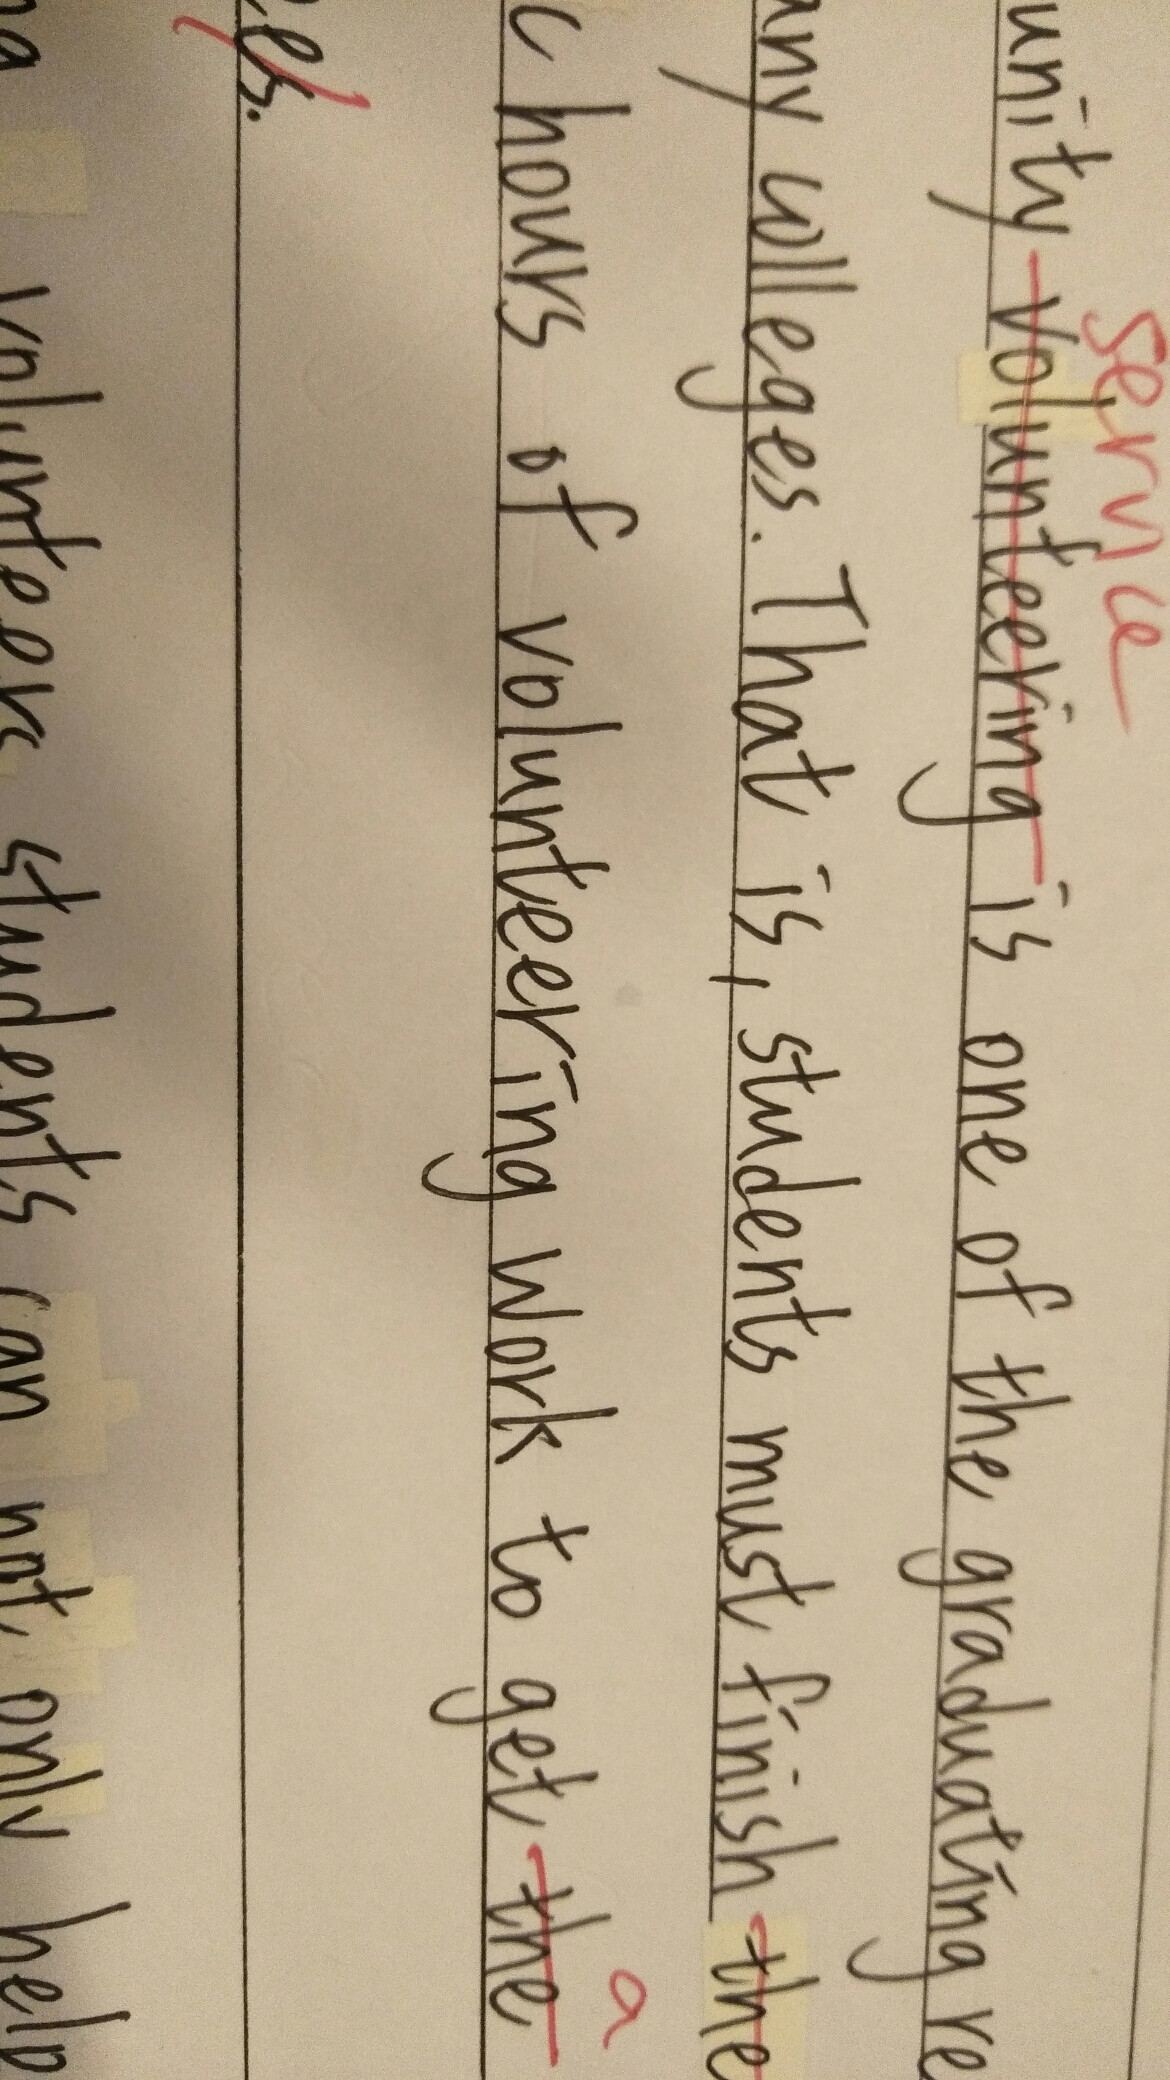 service
unity volunteering is one of the graduating re
any colleges. That is, students must finish the
a
c hours of volunteering work to get the
es.
volunteers students can not only help